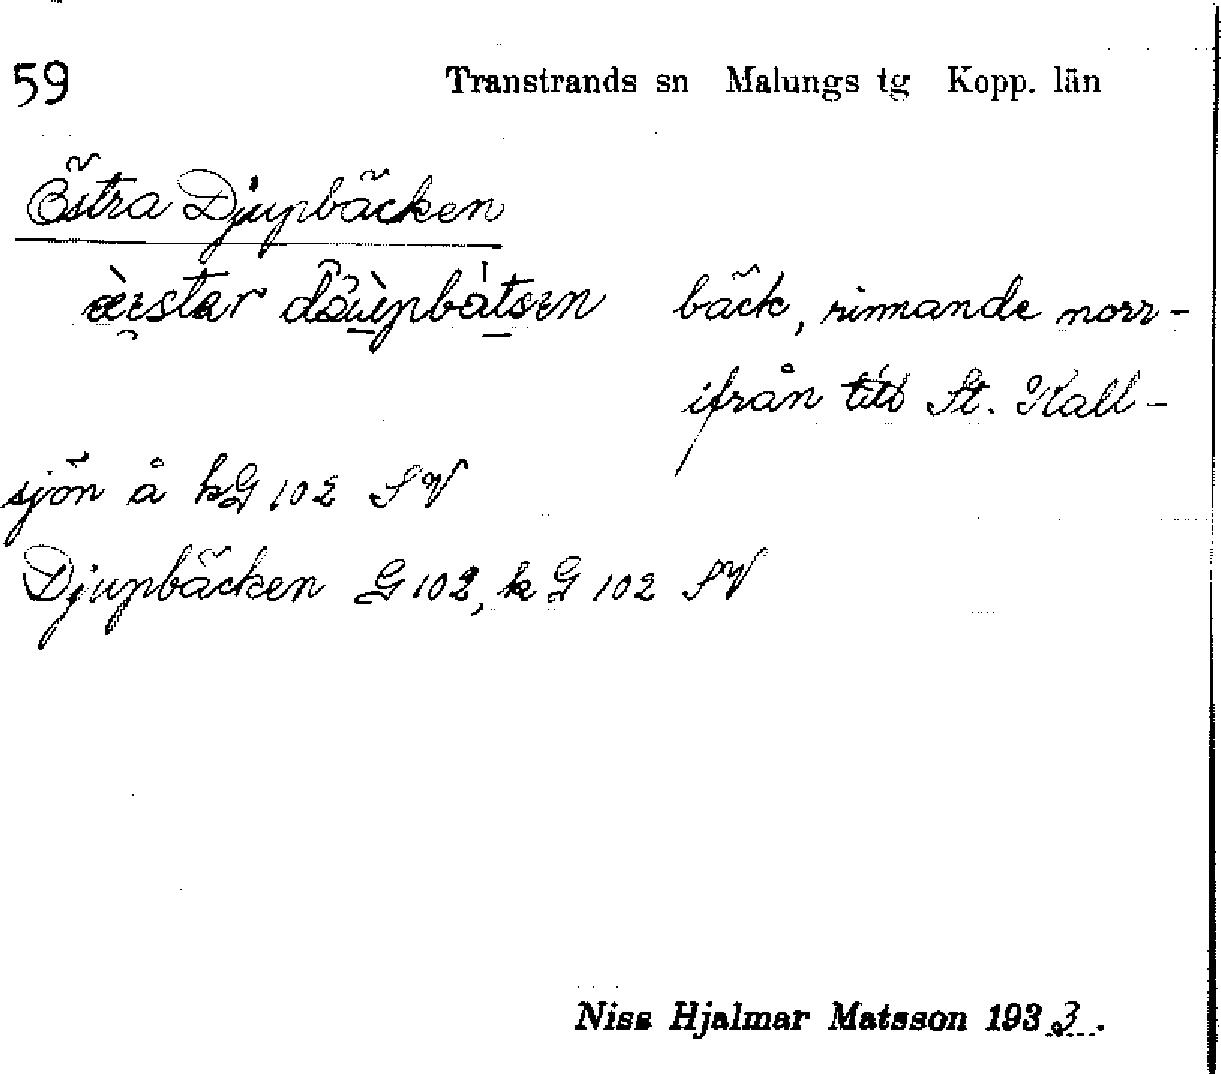 59 Transtrands sn Malungs tg Kopp. län
Östra Djupbäcken
bäck, rinnande norr-
ifrån till St. Kall-
sjön å kG 102 SV
Djupbäcken G 102, k G 102 SV
Niss Hjalmar Matsson 1933.